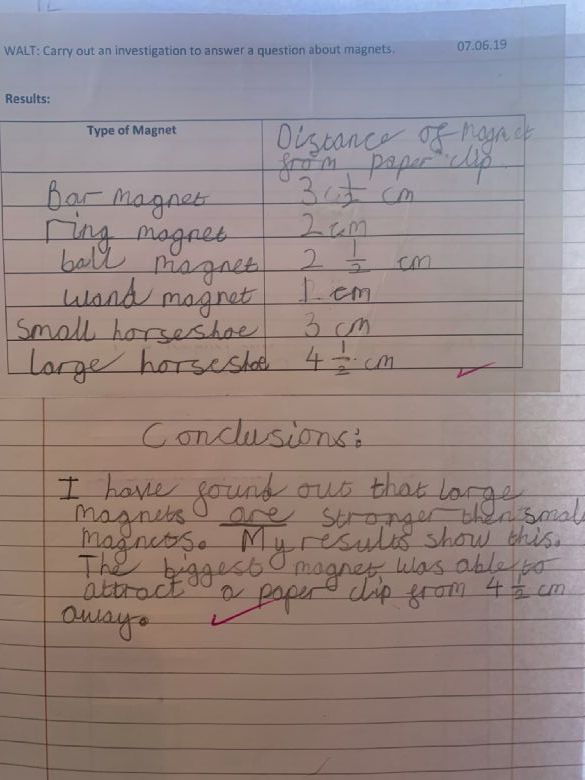 WALT: Carry out an investigation to answer a question about magnets. 07.06.19
Results:
Type of Magnet Distance of magnet
from paper clip
Bar magnet 3 1/2 cm
ring magnet 2 cm
ball magnet 2 1/2 cm
wand magnet 1 cm
small horseshoe 3 cm
large horseshoe 4 1/2 cm
Conclusions:
I have found out that large
magnets are stronger then small
magnets. My results show this.
The biggest magnet was able to
attract a paper clip from 4 1/2 cm
away.